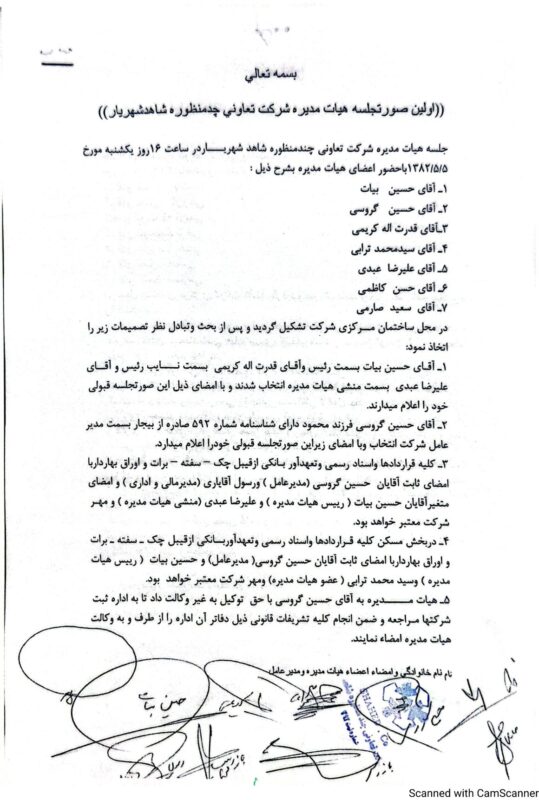 بسمه تعالي
((اولين صورتجلسه هيات مديره شركت تعاوني چدمنظوره شاهدشهريار))
جلسه هيات مديره شركت تعاونی چندمنظوره شاهد شهريـــاردر ساعت ۱۶روز يکشنبه مورخ
۱۳۸۲/۵/۵باحضور اعضای هيات مديره بشرح ذيل :
۱ـ آقای حسين بيات
۲ـ آقای حسين گروسی
۳ـآقای قدرت اله کريمی
۴ـ آقای سيدمحمد ترابی
۵ـ آقای عليرضا عبدی
۶ـ آقای حسن کاظمی
۷ـ آقای سعيد صارمی
در محل ساختمان مـركزی شركت تشكيل گرديد و پس از بحث وتبادل نظر تصميمات زير را
اتخاذ نمود:
۱ـ آقـای حسين بيات بسمت رئيس وآقای قدرت اله کريمی بسمت نـــايب رئيس و آقـای
عليرضا عبدی بسمت منشی هيات مديره انتخاب شدند و با امضای ذيل اين صورتجلسه قبولی
خود را اعلام ميدارند.
۲ـ آقای حسين گروسی فرزند محمود دارای شناسنامه شماره ۵۹۲ صادره از بيجار بسمت مدير
عامل شركت انتخاب وبا امضای زيراين صورتجلسه قبولی خودرا اعلام ميدارد.
۳ـ کليه قراردادها واسناد رسمی وتعهدآور بـانكی ازقبيل چک – سفته – برات و اوراق بهارداربا
امضای ثابت آقايان حسين گروسی (مديرعامل ) ورسول آقاياری (مديرمالی و اداری ) و امضای
متغيرآقايان حسين بيات ( رييس هيات مديره ) و عليرضا عبدی (منشی هيات مديره ) و مهـر
شرکت معتبر خواهد بود.
۴ـ دربخش مسکن کليه قـراردادها واسناد رسمی وتعهدآوربـــانکی ازقبيل چک ـ سفته ـ برات
و اوراق بهارداربا امضای ثابت آقايان حسين گروسی( مديرعامل) و حسين بيات ( رييس هيات
مديره ) وسيد محمد ترابی ( عضو هيات مديره) ومهر شرکت معتبر خواهد بود.
۵ـ هيات مـــــديره به آقای حسين گروسی با حق توکيل به غير وکالت داد تا به اداره ثبت
شرکتها مراجعه و ضمن انجام کليه تشريفات قانونی ذيل دفاتر آن اداره را از طرف و به وکالت
هيات مديره امضاء نمايند.
نام نام خانوادگی و امضاء اعضاء هيات مديره ومديرعامل
حسين بيات
Scanned with CamScanner